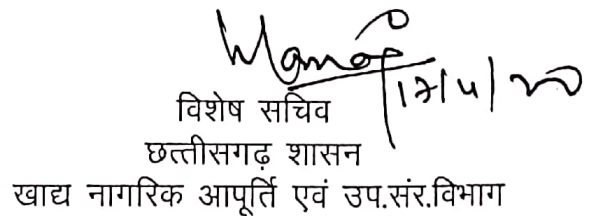 Manoj
17/4/20
विशेष सचिव
छत्तीसगढ़ शासन
खाद्य नागरिक आपूर्ति एवं उप.संर.विभाग